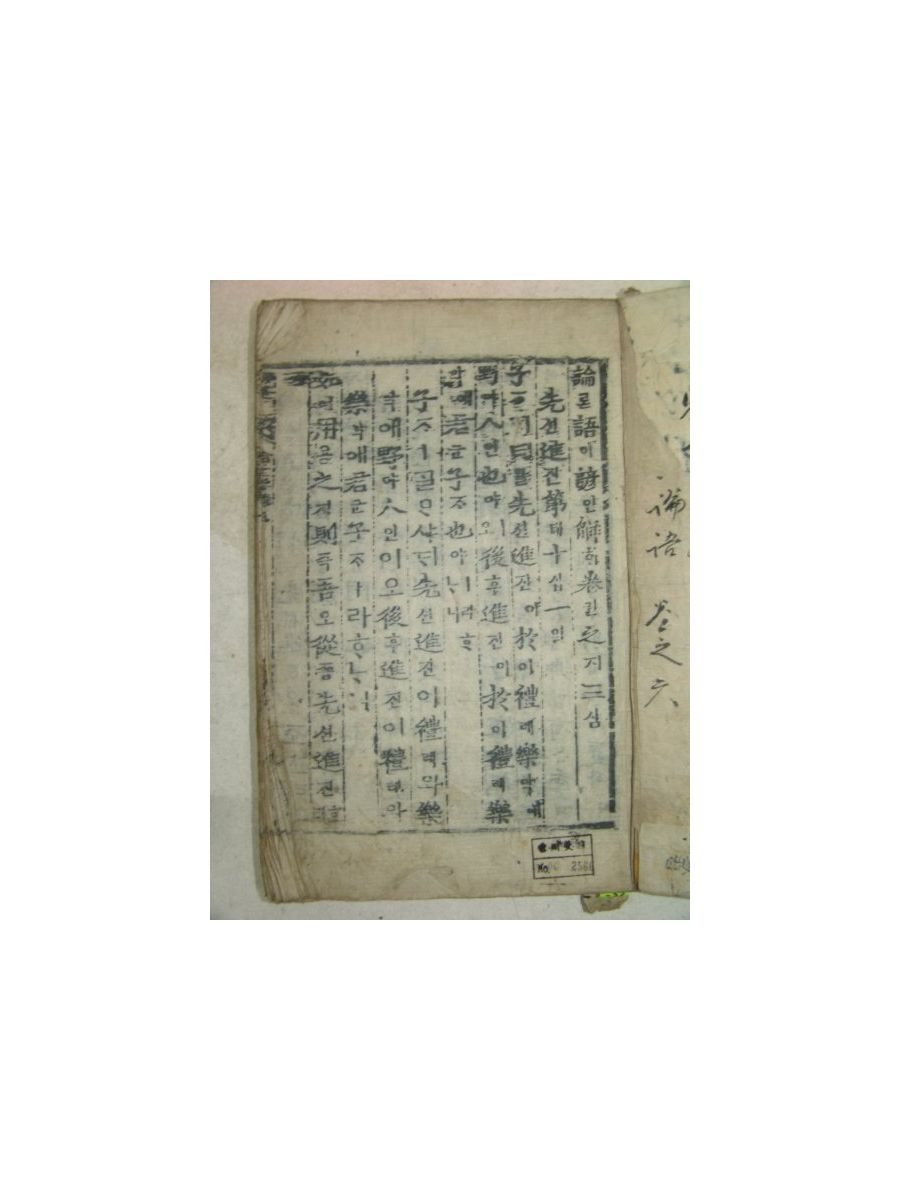 論론語어諺언解ᄒᆡ卷권之지三삼
先션進진第뎨十십一일
子ᄌᆞ曰왈先션進진이於어禮례樂악애
野야人인也야ㅣ오後후進진이於어禮례樂
악애君군子ᄌᆞ也야ㅣ라ᄒᆞᄂᆞ니
子ᄌᆞㅣᄀᆞᆯᄋᆞ샤ᄃᆡ先션進진이禮례와樂
악애野야人인이오後후進진이禮례와
樂악애君군子ᄌᆞㅣ라ᄒᆞᄂᆞ니
如여用용之지則즉吾오從죵先션進진
論語 卷之六
No. 2566